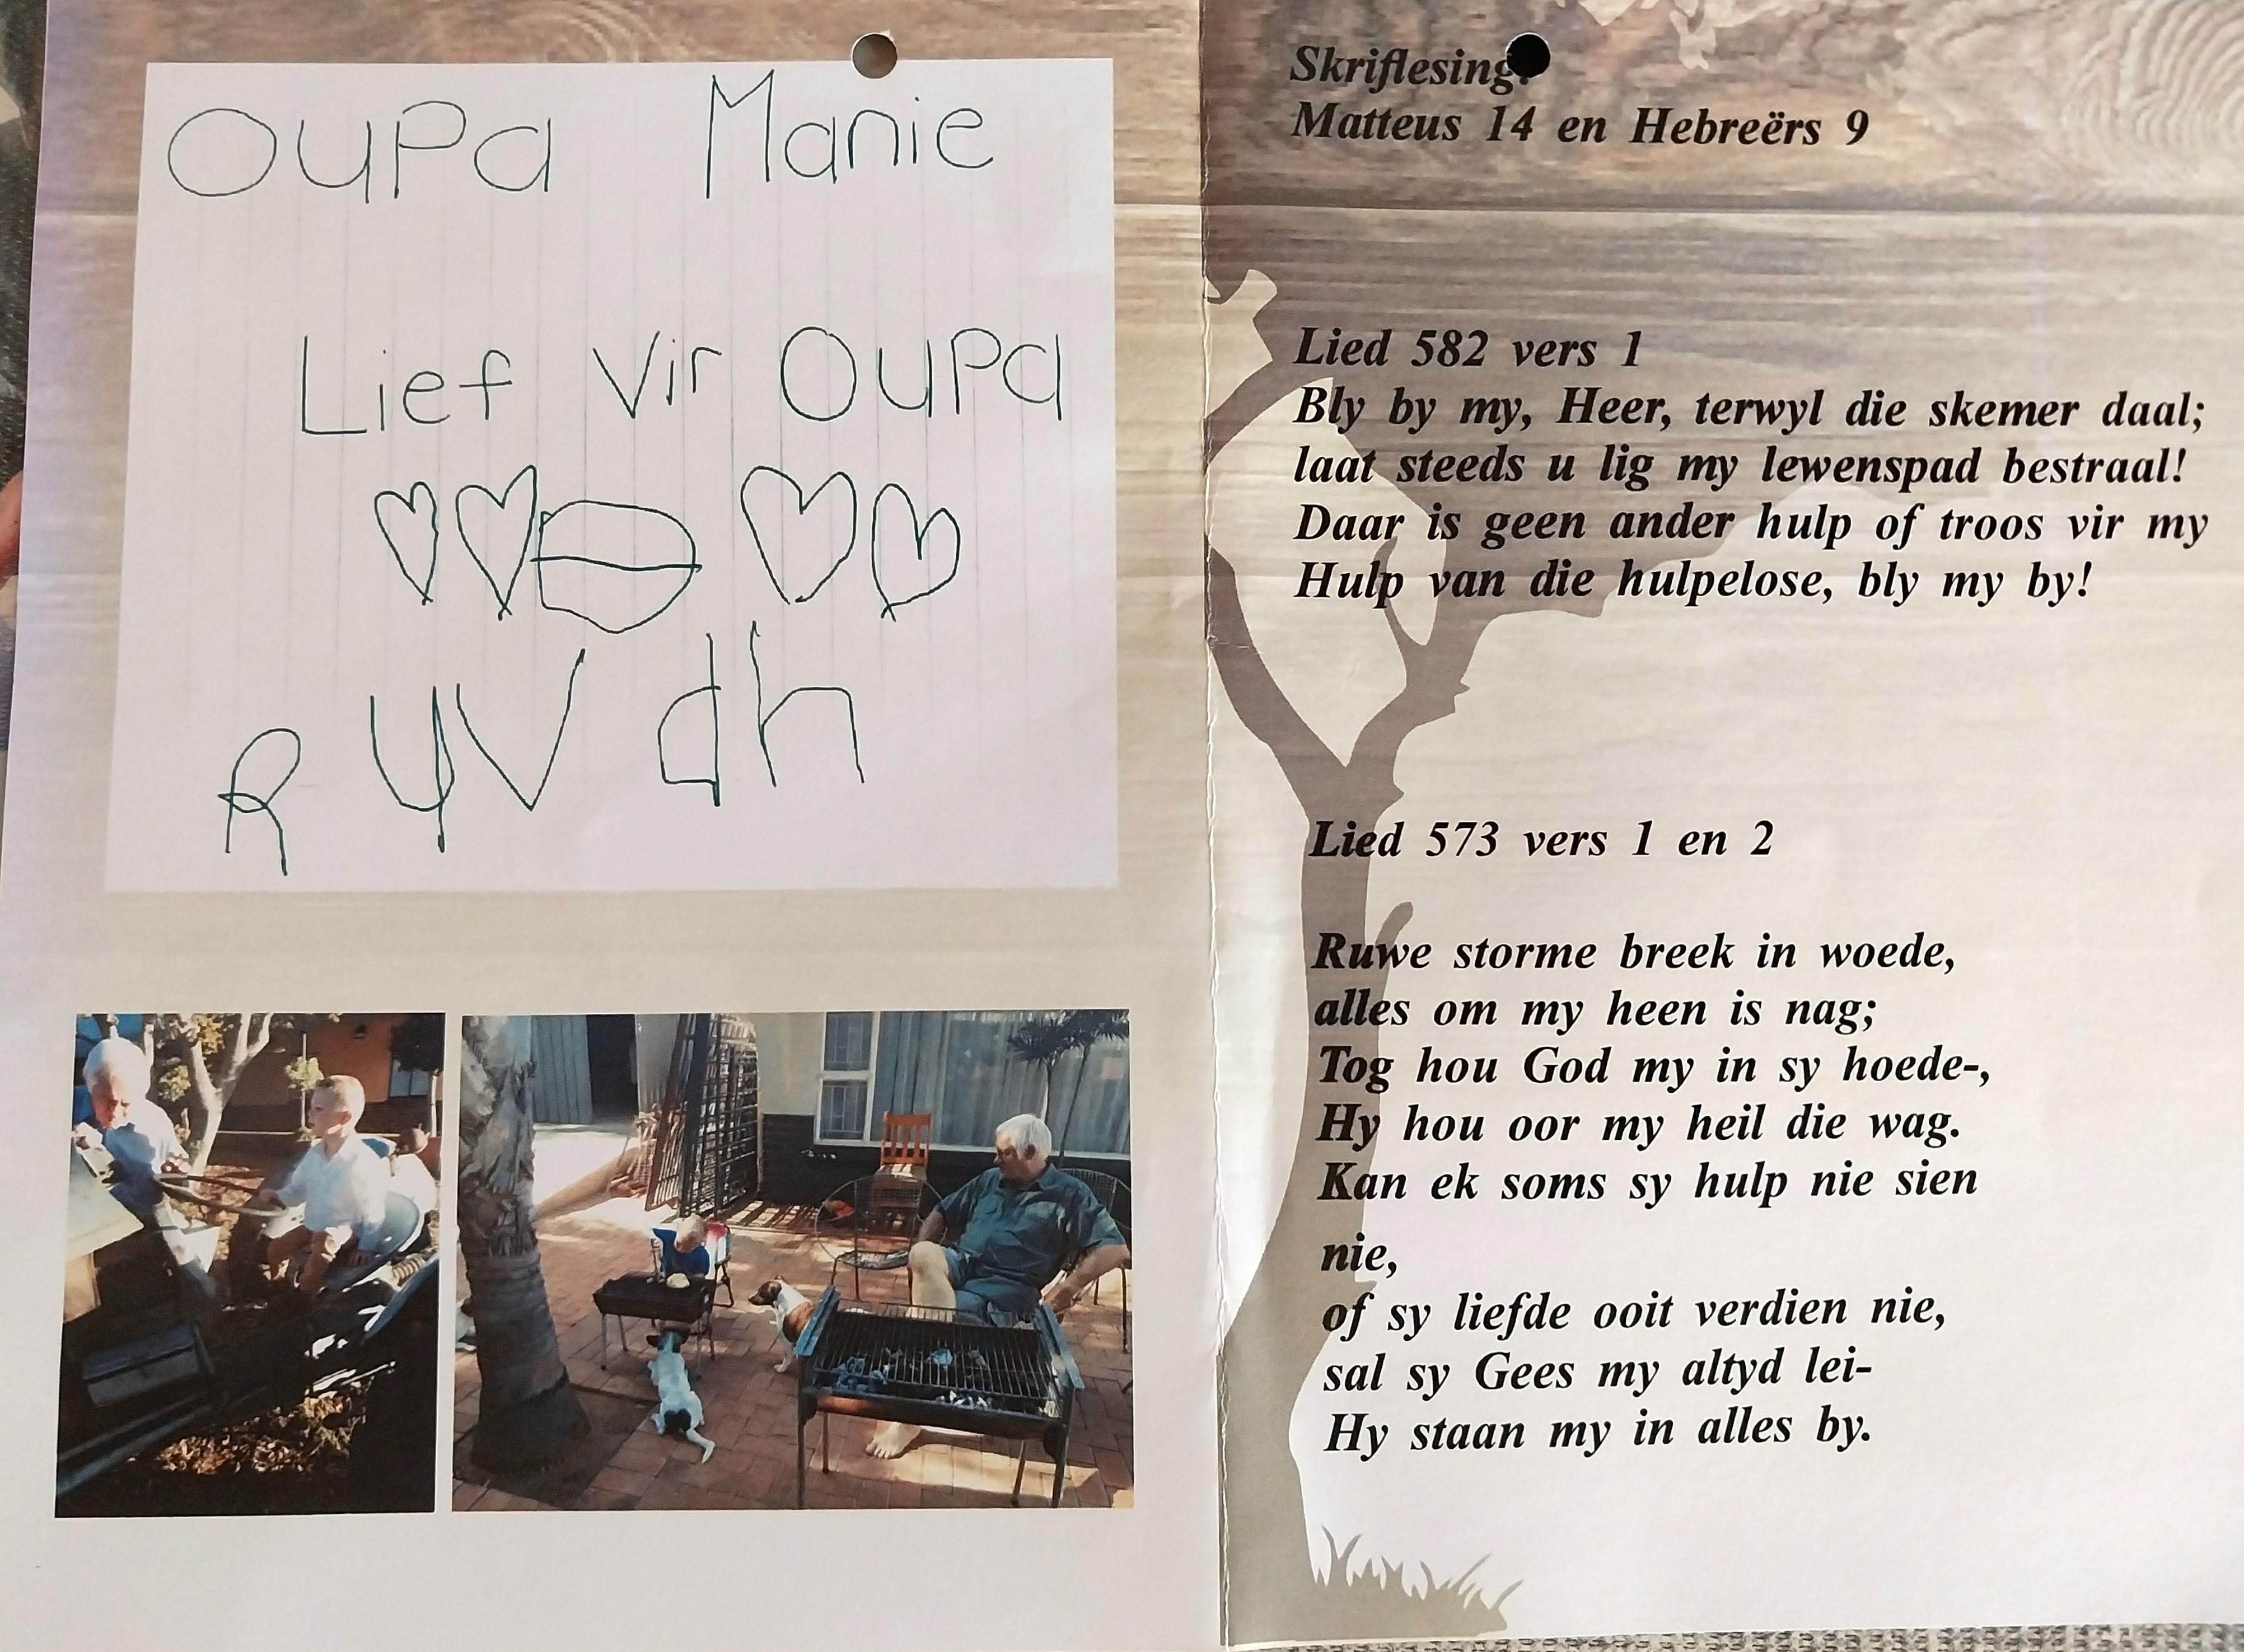 Oupa Manie
Lief vir Oupa
R yv dh
Skriflesing:
Matteus 14 en Hebreërs 9
Lied 582 vers 1
Bly by my, Heer, terwyl die skemer daal;
laat steeds u lig my lewenspad bestraal!
Daar is geen ander hulp of troos vir my
Hulp van die hulpelose, bly my by!
Lied 573 vers 1 en 2
Ruwe storme breek in woede,
alles om my heen is nag;
Tog hou God my in sy hoede-,
Hy hou oor my heil die wag.
Kan ek soms sy hulp nie sien
nie,
of sy liefde ooit verdien nie,
sal sy Gees my altyd lei-
Hy staan my in alles by.